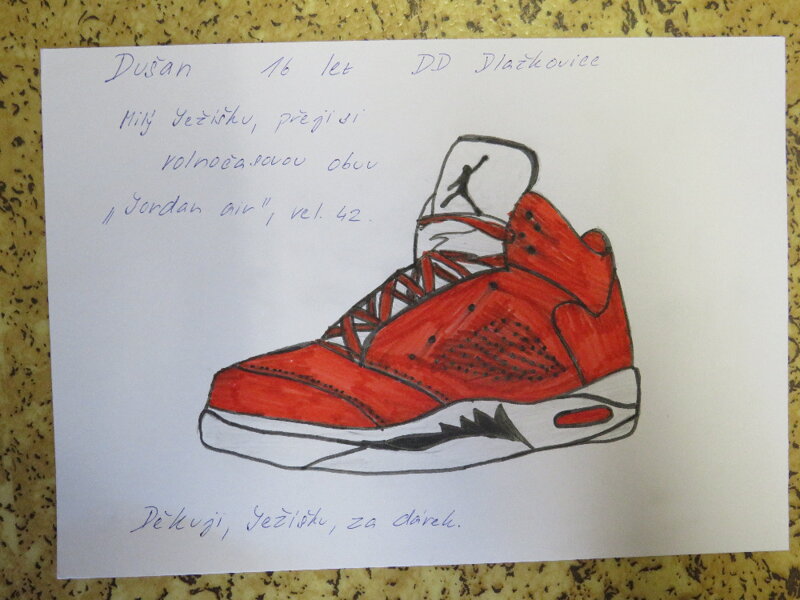 Dušan 16 let DD Dlažkovice
Milý Ježíšku, přeji si
volnočasovou obuv
„Jordan air", vel. 42.
Děkuji, Ježíšku, za dárek.